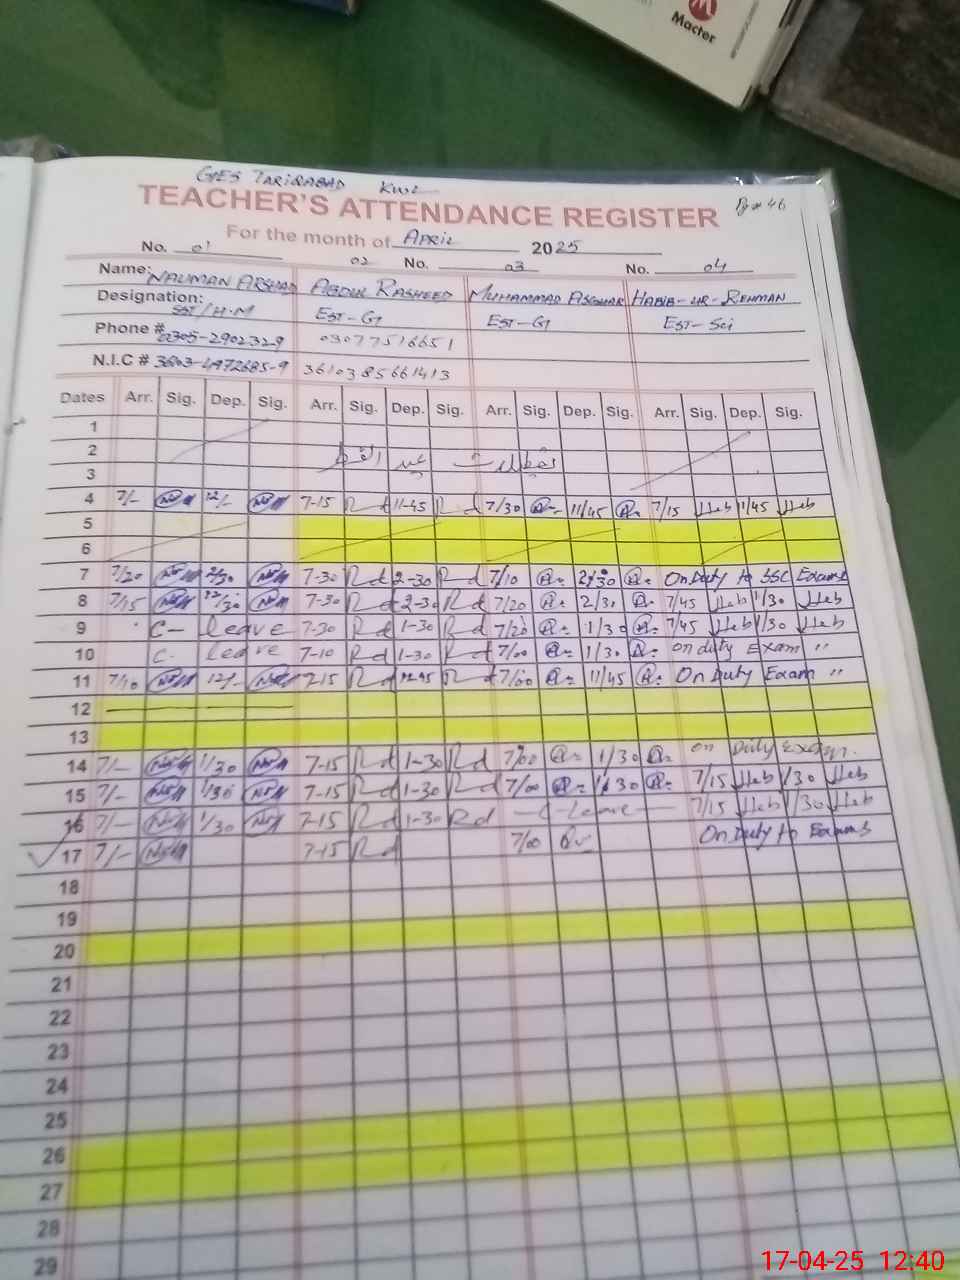 Macter
GES TARIQABAD KWL
TEACHER'S ATTENDANCE REGISTER
For the month of April 2025
No. 01 02 No. 03 No. 04
Name: NAUMAN ARSHAD ABDUL RASHEED MUHAMMAD ASGHAR HABIB-UR-REHMAN
Designation: SST/H.M EST-G EST-G EST-Sci
Phone # 0305-2902329 03077516651
N.I.C # 3610385661413
Dates Arr. Sig. Dep. Sig. Arr. Sig. Dep. Sig. Arr. Sig. Dep. Sig. Arr. Sig. Dep. Sig.
1
2
3
4 7/- 12/- 7-15 Rd 11-45 Rd 7/30 11/45 7/15 Heb 11/45 Heb
5
6
7 7/20 7-30 Rd 2-30 Rd 7/10 2/30 On Duty to SSC Exams
8 7/15 12/30 7-30 Rd 2-30 Rd 7/20 2/30 7/45 Heb 1/30 Heb
9 C- leave 7-30 Rd 1-30 Rd 7/20 1/30 7/45 Heb 1/30 Heb
10 C- leave 7-10 Rd 1-30 Rd 7/00 1/30 on duty Exam "
11 7/10 12/- 7-15 Rd Rd 7/00 11/45 On Duty Exam "
12
13
14 7/- 1/30 7-15 Rd 1-30 Rd 7/00 1/30 on Duty Exam.
15 7/- 1/30 7-15 Rd 1-30 Rd 7/00 1/30 7/15 Heb 1/30 Heb
16 7/- 1/30 7-15 Rd 1-30 Rd C-leave 7/15 Heb 1/30 Heb
17 7/- 7-15 Rd 7/00 On Duty to Exams
18
19
20
21
22
23
24
25
26
27
28
29
17-04-25 12:40